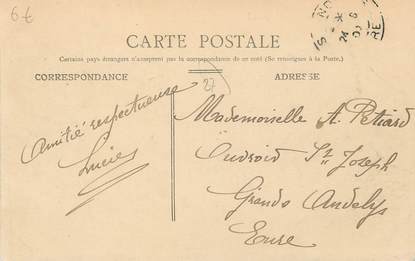 6€
CARTE POSTALE
Certains pays étrangers n'acceptent pas la correspondance de ce coté (Se renseignera à la Poste.)
CORRESPONDANCE
ADRESSE
27
Amitié respectueuse
Lucie
Mademoiselle A. Petiard
St Joseph
Grands Andelys
Eure